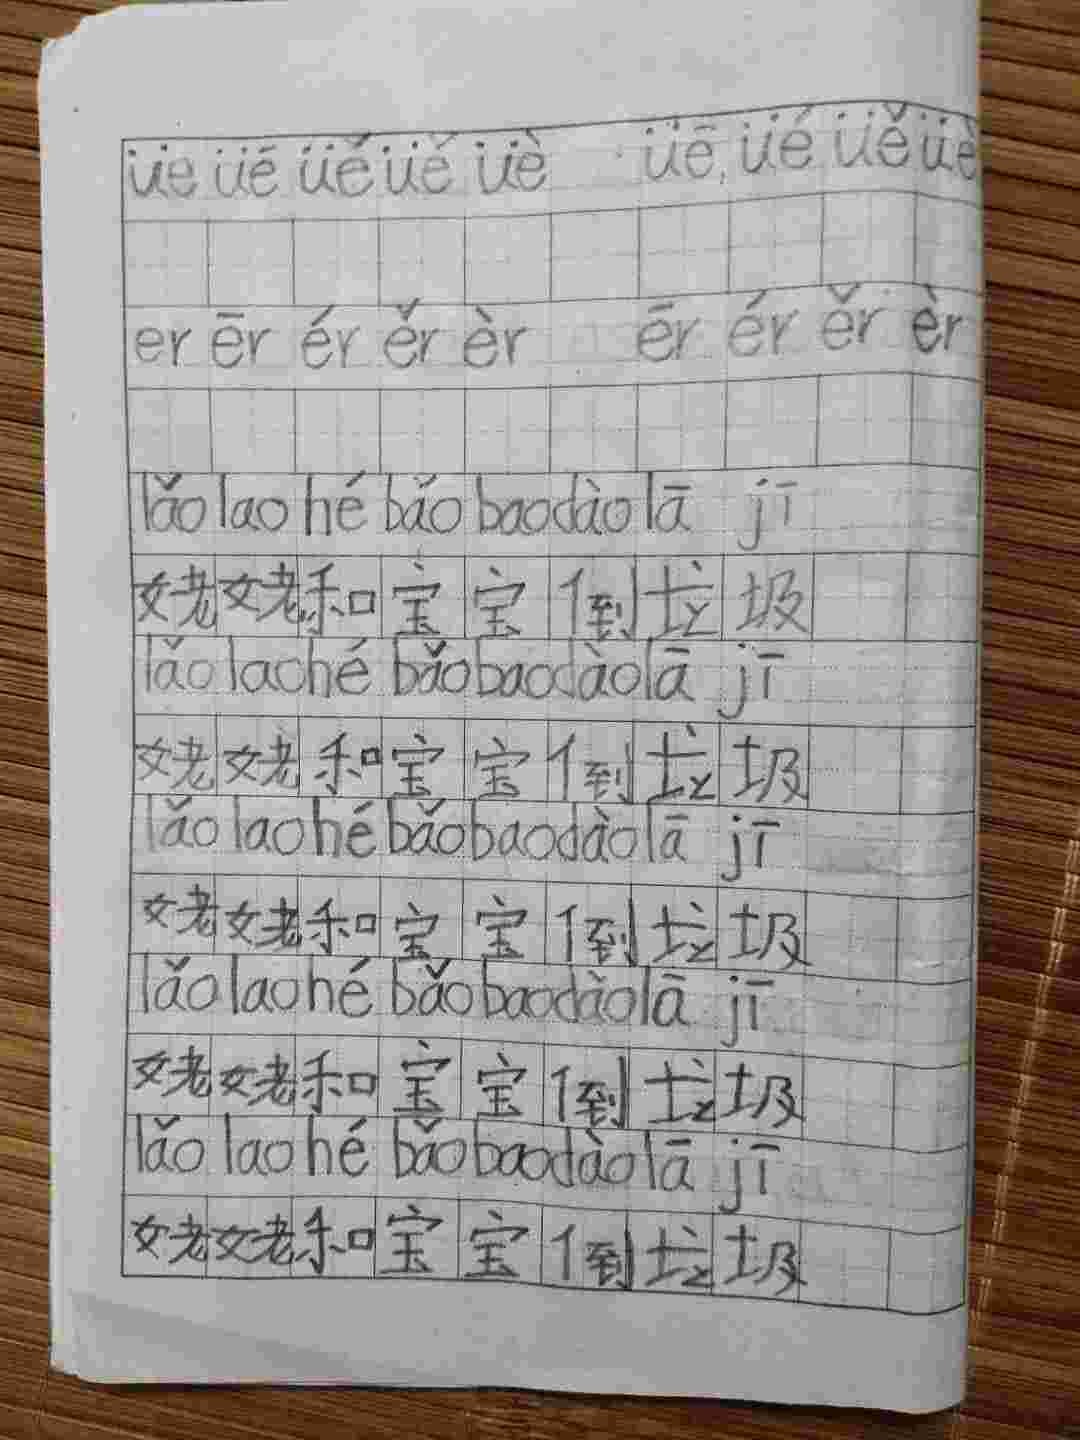 üe üē üé üě üè üē üé üě üè
er ēr ér ěr èr ēr ér ěr èr
lǎo lao hé bǎo bao dào lā jī
姥姥和宝宝倒垃圾
lǎo lao hé bǎo bao dào lā jī
姥姥和宝宝倒垃圾
lǎo lao hé bǎo bao dào lā jī
姥姥和宝宝倒垃圾
lǎo lao hé bǎo bao dào lā jī
姥姥和宝宝倒垃圾
lǎo lao hé bǎo bao dào lā jī
姥姥和宝宝倒垃圾